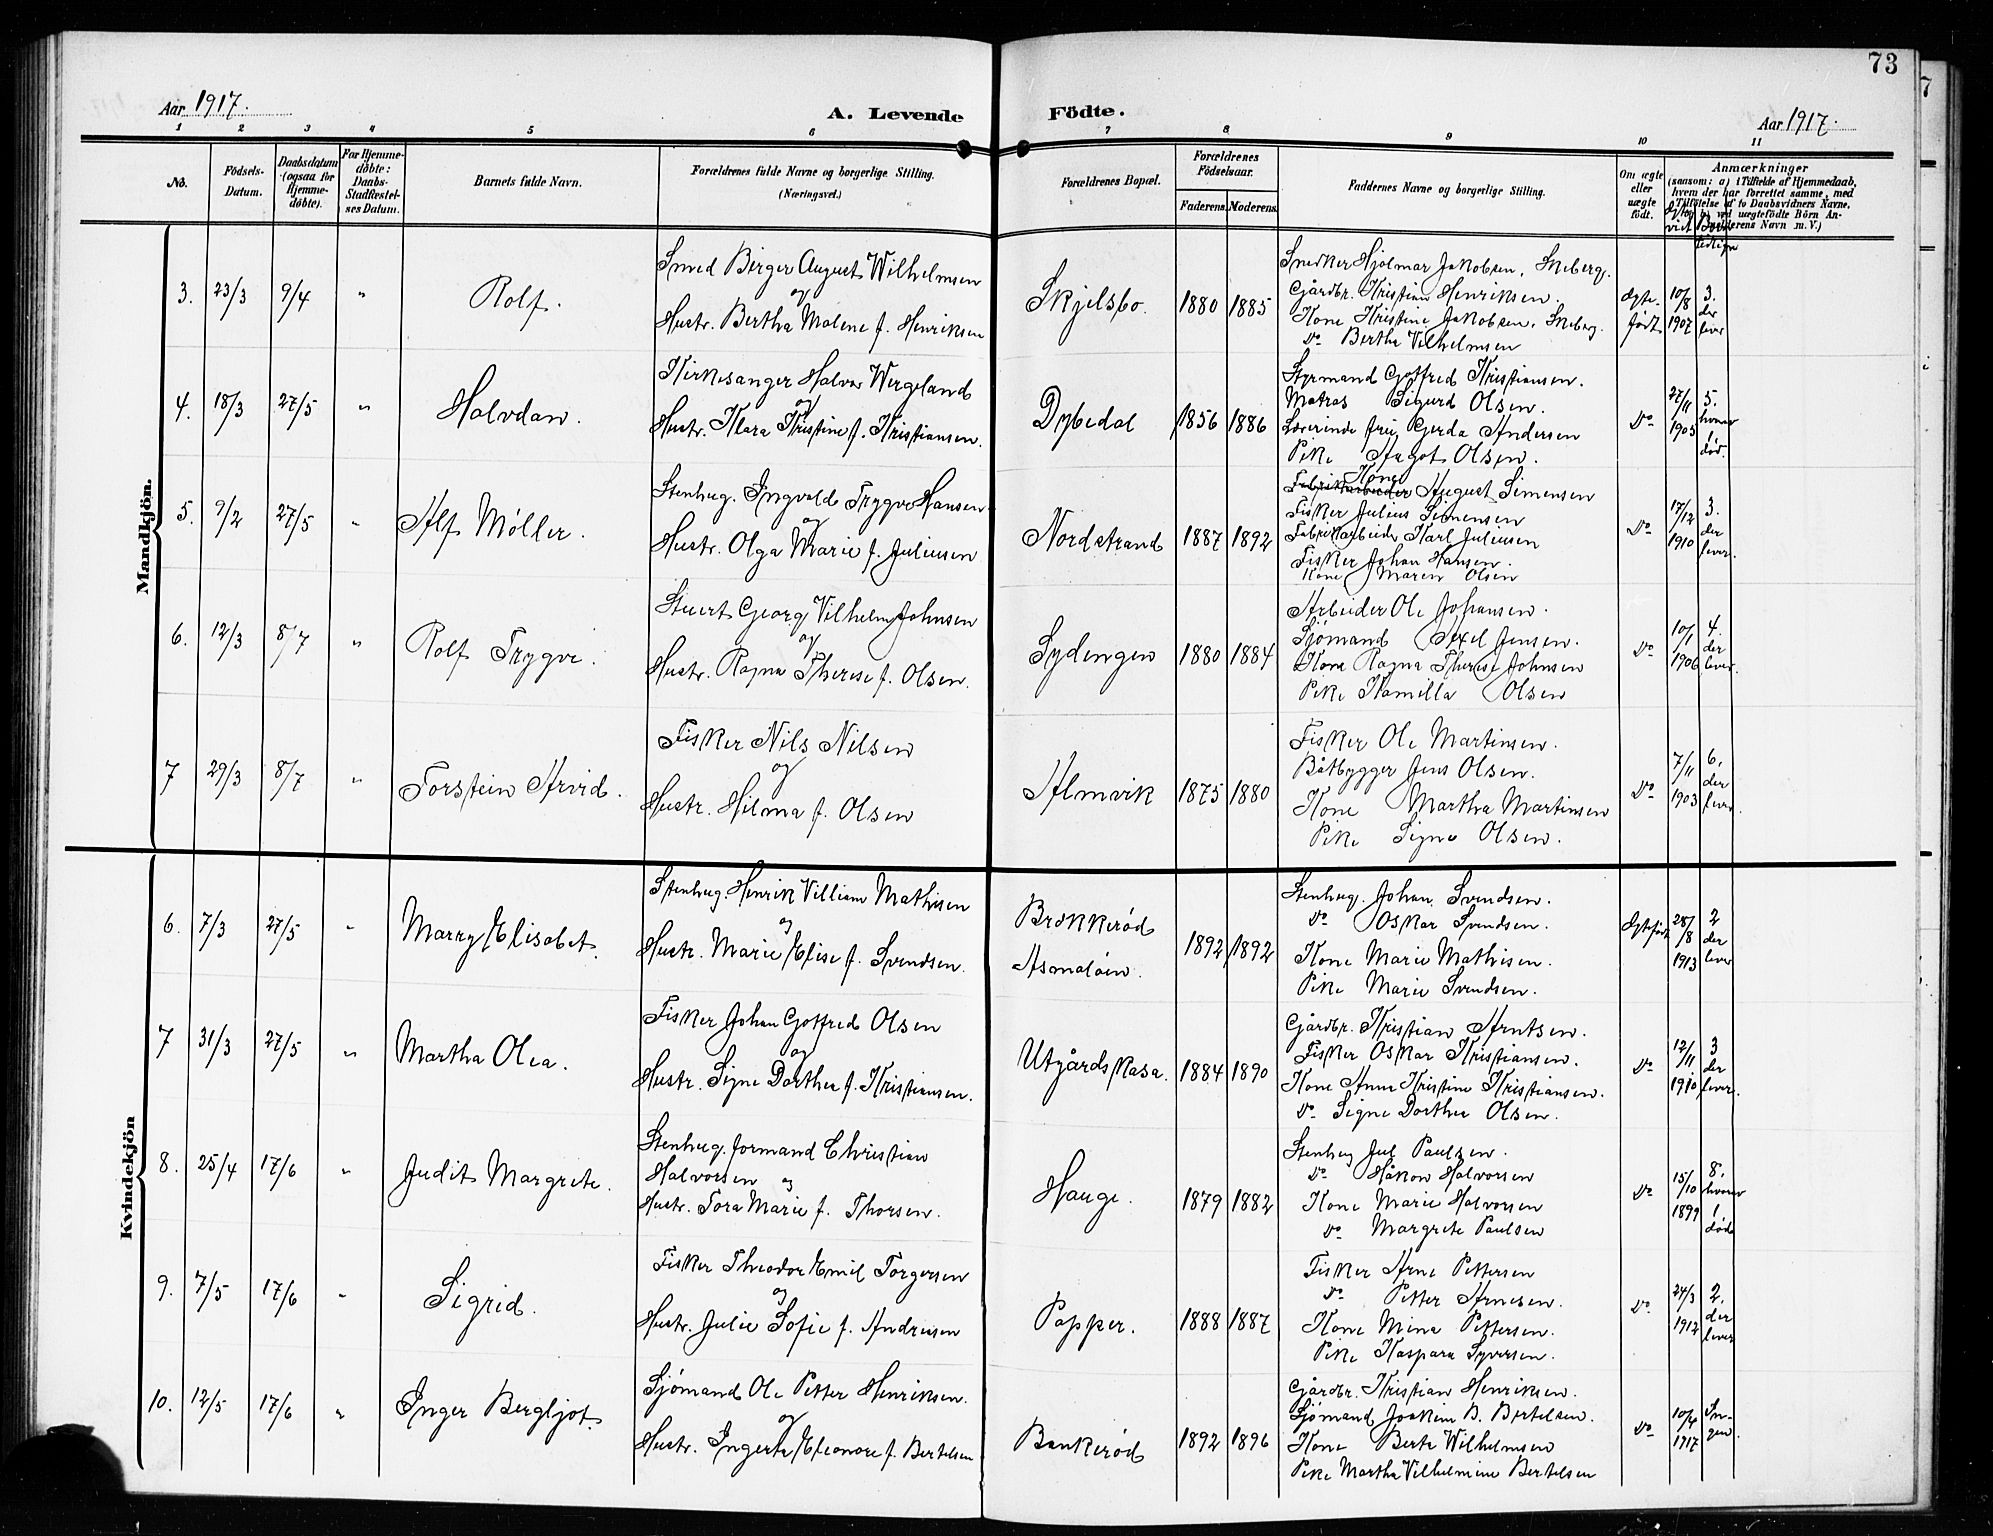 73
Aar 1917.
A. Levende Födte.
Aar 1917.
1 2 3 4 5 6 7 8 9 10 11
No.
Födsels-Datum.
Daabsdatum (ogsaa for Hjemme-döbte).
For Hjemme-döbte: Daabs-Stadfæstel-ses Datum.
Barnets fulde Navn.
Forældrenes fulde Navne og borgerlige Stilling.
(Næringsvei.)
Forældrenes Bopæl.
Forældrenes Födselsaar.
Faderens. Moderens.
Faddernes Navne og borgerlige Stilling.
Om ægte eller uægte födt.
Anmærkninger
(saasom: a) i Tilfælde af Hjemmedaab,
hvem der har forrettet samme, med
Tilföielse af to Daabsvidners Navne,
b) ved uægtefödte Börn An-
Navn m. V.)
Mandkjön.
3. 23/3 9/4 " Rolf.
Smed Birger August Wilhelmsen
og
Hustr. Bertha Malene f. Henriksen
Skjelsbo. 1880 1885
Snedker Hjalmar Jakobsen, Skeberg.
Gårdbr. Kristian Henriksen.
Kone Kristine Jakobsen, Skeberg.
do Bertha Vilhelmsen
Ægte-født
10/8 1907
3. der lever
4. 18/3 27/5 " Halvdan.
Kirkesanger Halvor Wergeland
og
Hustr. Klara Kristine f. Kristiansen.
Dypedal 1856 1886
Styrmand Gotfred Kristiansen.
Matros Sigurd Olsen.
Lærerinde frk. Gerda Andersen
Pike Aagot Olsen.
do
27/11 1905
5. hvorav 1 død.
5. 9/2 27/5 " Alf Møller.
Stenhug. Ingvald Trygve Hansen
og
Hustr. Olga Marie f. Juliusen
Nordstrand 1887 1892
Kone
Fabrikarbeider August Simensen
Fisker Julius Simensen
Fabrikarbeider Karl Juliusen
Fisker Johan Hansen.
Kone Maren Olsen
do
17/12 1910
3. der lever.
6. 12/3 8/7 " Rolf Trygve.
Stuert Georg Vilhelm Johnsen
og
Hustr. Ragna Therese f. Olsen.
Sydengen 1880 1884
Arbeider Ole Johansen.
Sjømand Axel Jensen.
Kone Ragna Therese Johnsen
Pike Kamilla Olsen
do
10/1 1906
4. der lever.
7 29/3 8/7 " Torstein Arvid.
Fisker Nils Nilsen
og
Hustr. Hilma f. Olsen
Almvik 1875 1880
Fisker Ole Martinsen.
Båtbygger Jens Olsen.
Kone Martha Martinsen
Pike Signe Olsen.
do
7/11 1903
6, der lever.
Kvindekjön
6. 7/3 27/5 " Marry Elisabet.
Stenhug. Henrik Villiam Mathisen
og
Hustr. Marie Elise f. Svendsen.
Brekkerød
Asmaløen. 1892 1892
Stenhug. Johan Svendsen.
do Oskar Svendsen.
Kone Marie Mathisen.
Pike Marie Svendsen.
Ægtefødt
28/8 1913
2 der lever
7 31/3 27/5 " Martha Olea.
Fisker Johan Gotfred Olsen
og
Hustr. Signe Dorthea f. Kristiansen.
Utgårdskasa. 1884 1890
Gårdbr. Kristian Arntsen.
Fisker Oskar Kristiansen.
Kone Anne Kristine Kristiansen.
do Signe Dorthea Olsen.
do
12/11 1910
3 der lever.
8. 25/4 17/6 " Judit Margrete.
Stenhug. formand Christian
Halvorsen og
Hustr. Tora Marie f. Thorsen.
Hauge. 1879 1882
Stenhug Jul Paulsen.
do Håkon Halvorsen
Kone Marie Halvorsen
do Margrete Paulsen
do
15/10 1899
8, hvorav 1 død
9. 7/5 17/6 " Sigrid.
Fisker Theodor Emil Torgersen
og
Hustr. Julie Sofie f. Andresen
Papper. 1888 1887
Fisker Arne Pettersen
do Petter Arnesen.
Kone Mina Pettersen.
Pike Kaspara Syversen.
do
24/3 1912
2, der lever
10. 12/5 17/6 " Inger Bergljot.
Sjømand Ole Petter Henriksen.
og
Hustr. Ingerta Eleonore f. Bertelsen
Bankerød 1892 1896
Gårdbr. Kristian Henriksen.
Sjømand Joakim B. Bertelsen.
Kone Berta Wilhelmsen
Pike Martha Vilhelmine Bertelsen
do
10/4 1917
In-gen.